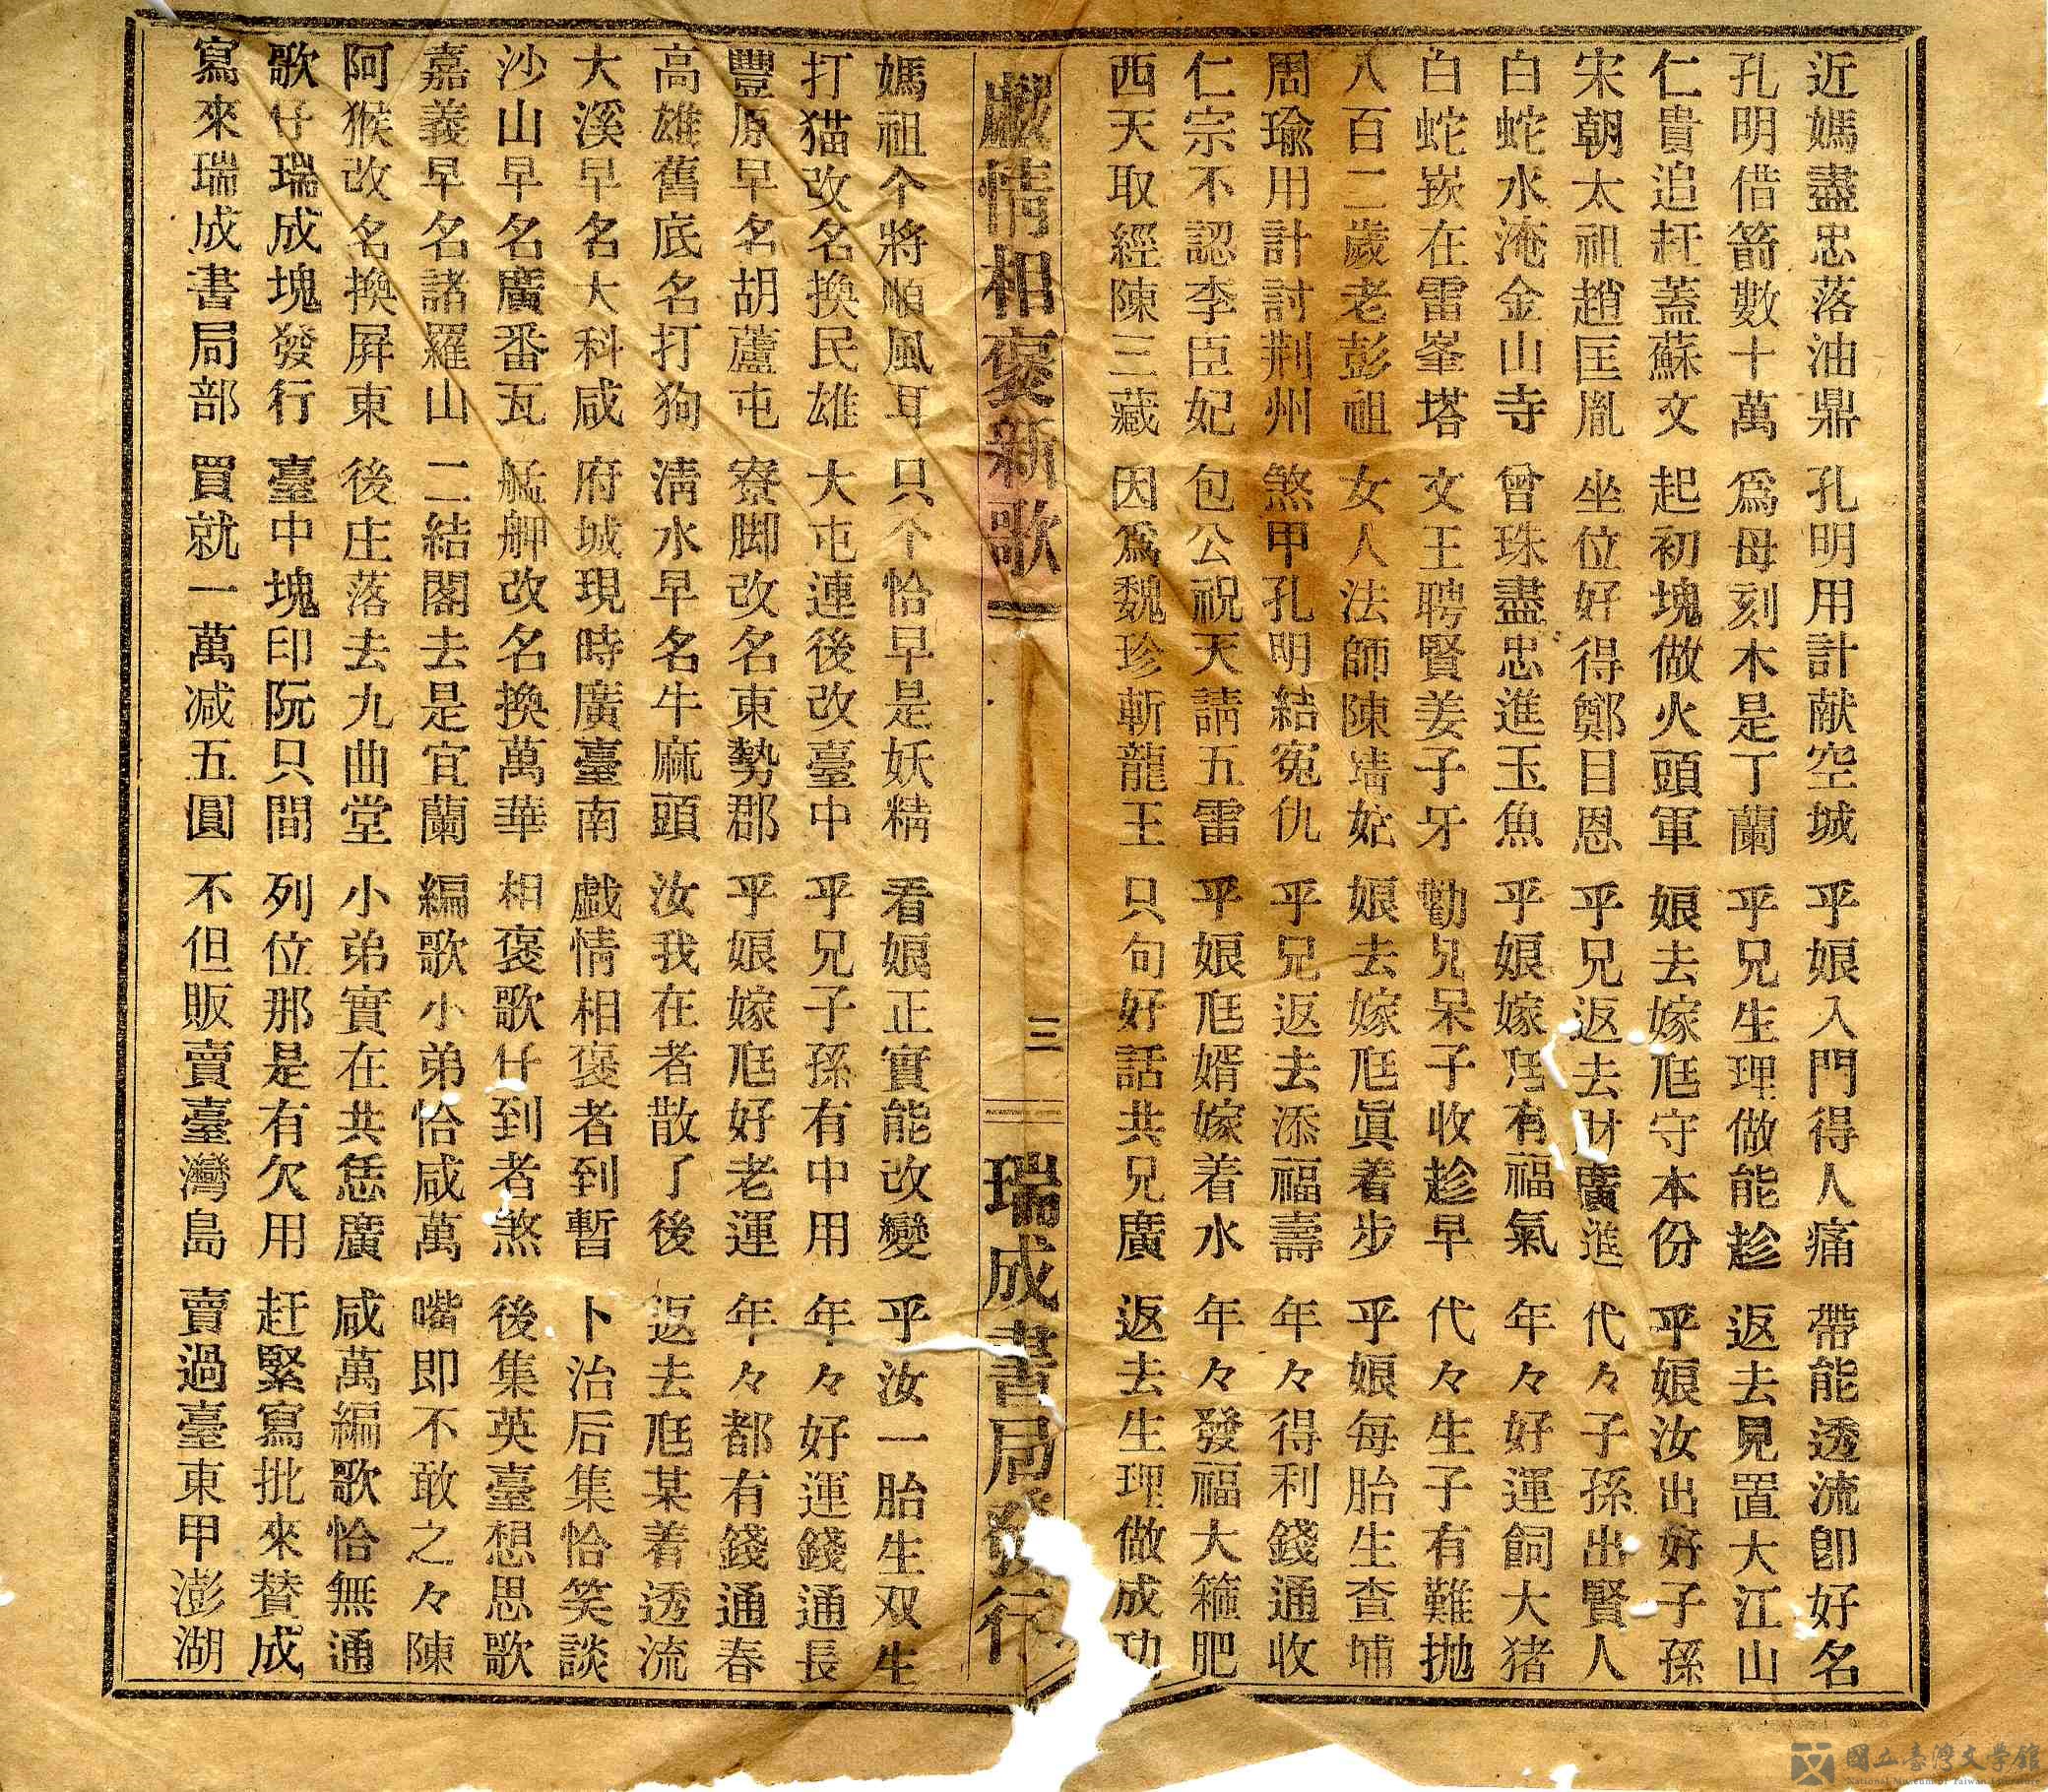 近媽盡忠落油鼎 孔明用計献空城 乎娘入門得人痛 帶能透流卽好名
孔明借箭數十萬 爲母刻木是丁蘭 乎兄生理做能趁 返去見置大江山
仁貴追赶蓋蘇文 起初塊做火頭軍 娘去嫁尫守本份 乎娘汝出好子孫
宋朝太祖趙匡胤 坐位好得鄭目恩 乎兄返去財廣進 代々子孫出賢人
白蛇水淹金山寺 曾珠盡忠進玉魚 乎娘嫁尫有福氣 年々好運飼大猪
白蛇崁在雷峯塔 文王聘賢姜子牙 勸兄呆子收趁早 代々生子有難抛
八百二歲老彭祖 女人法師陳墻姑 娘去嫁尫眞着步 乎娘每胎生查埔
周瑜用計討荆州 煞甲孔明結寃仇 乎兄返去添福壽 年々得利錢通收
仁宗不認李臣妃 包公祝天請五雷 乎娘尫婿嫁着水 年々發福大箍肥
西天取經陳三藏 因爲魏珍斬龍王 只句好話共兄廣 返去生理做成功
戱情相褒新歌 三 瑞成書局發行
媽祖个將順風耳 只个恰早是妖精 看娘正實能改變 乎汝一胎生双生
打猫改名換民雄 大屯連後改臺中 乎兄子孫有中用 年々好運錢通長
豐原早名胡蘆屯 寮脚改名東勢郡 乎娘嫁尫好老運 年々都有錢通春
高雄舊底名打狗 淸水早名牛麻頭 汝我在者散了後 返去尫某着透流
大溪早名大科咸 府城現時廣臺南 戱情相褒者到暫 卜治后集恰笑談
沙山早名廣番瓦 艋舺改名換萬華 相褒歌仔到者煞 後集英臺想思歌
嘉義早名諸羅山 二結閣去是宜蘭 編歌小弟恰咸萬 嘴即不敢之々陳
阿猴改名換屏東 後庄落去九曲堂 小弟實在共恁廣 咸萬編歌恰無通
歌仔瑞成塊發行 臺中塊印阮只間 列位那是有欠用 赶緊寫批來賛成
寫來瑞成書局部 買就一萬减五圓 不但販賣臺灣島 賣過臺東甲澎湖
國立臺灣文學館
National Museum of Taiwan Literature